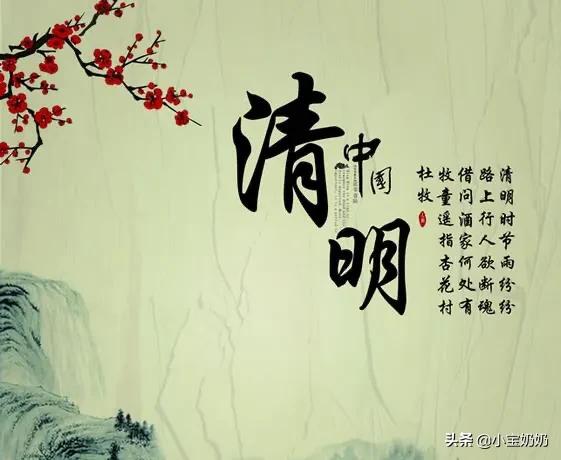 清明
中國
清明时节雨纷纷
路上行人欲断魂
借问酒家何处有
牧童遥指杏花村
杜牧
头条 @小宝奶奶